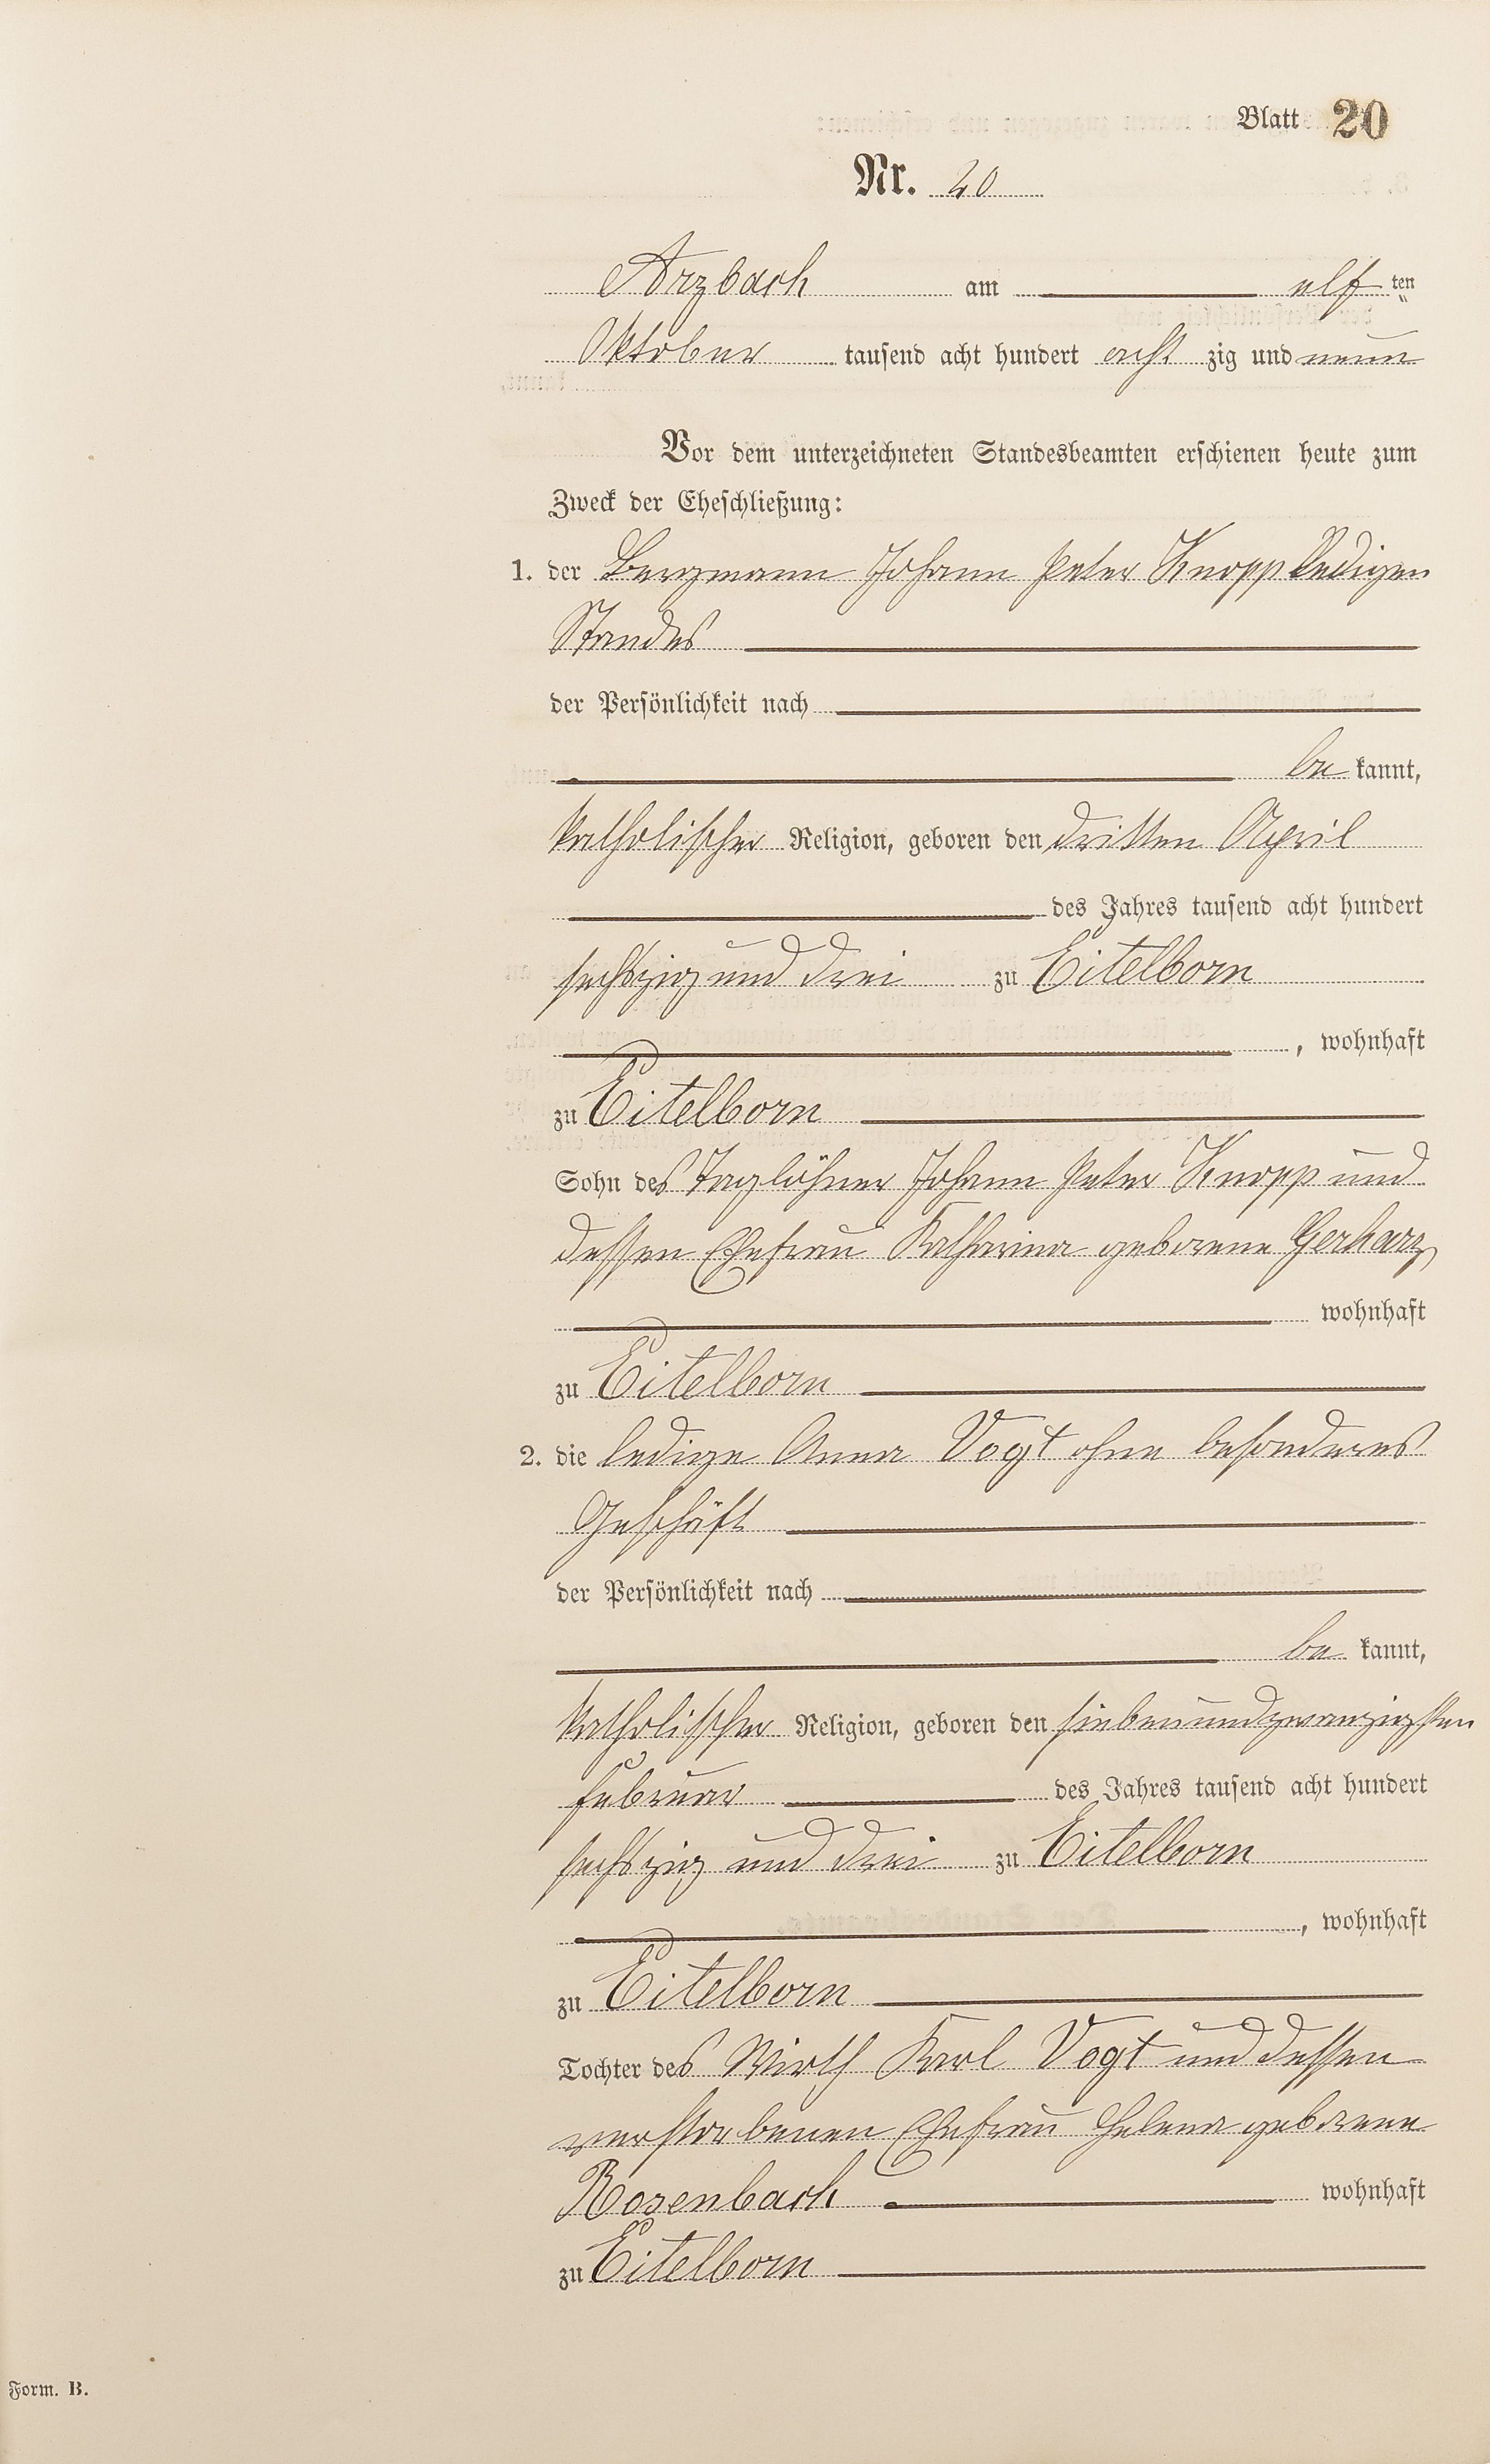 Blatt 20
Nr. 20
Arzbach am elf ten
Oktober tausend acht hundert acht zig und neun
Vor dem unterzeichneten Standesbeamten erschienen heute zum
Zweck der Eheschließung:
1. der Bergmann Johann Peter Knopp ledigen
Standes
der Persönlichkeit nach
be kannt,
katholischer Religion, geboren den dritten April
des Jahres tausend acht hundert
sechszig und drei zu Eitelborn
, wohnhaft
zu Eitelborn
Sohn des Taglöhner Johann Peter Knopp und
dessen Ehefrau Katharina geborene Gerharz
wohnhaft
zu Eitelborn
2. die ledige Anna Vogt ohne besonderes
Geschäft
der Persönlichkeit nach
be kannt,
katholischer Religion, geboren den siebenundzwanzigsten
Februar des Jahres tausend acht hundert
sechszig und drei zu Eitelborn
, wohnhaft
zu Eitelborn
Tochter des Wirth Karl Vogt und dessen
verstorbenen Ehefrau Helena geborene
Rosenbach wohnhaft
zu Eitelborn
Form. B.